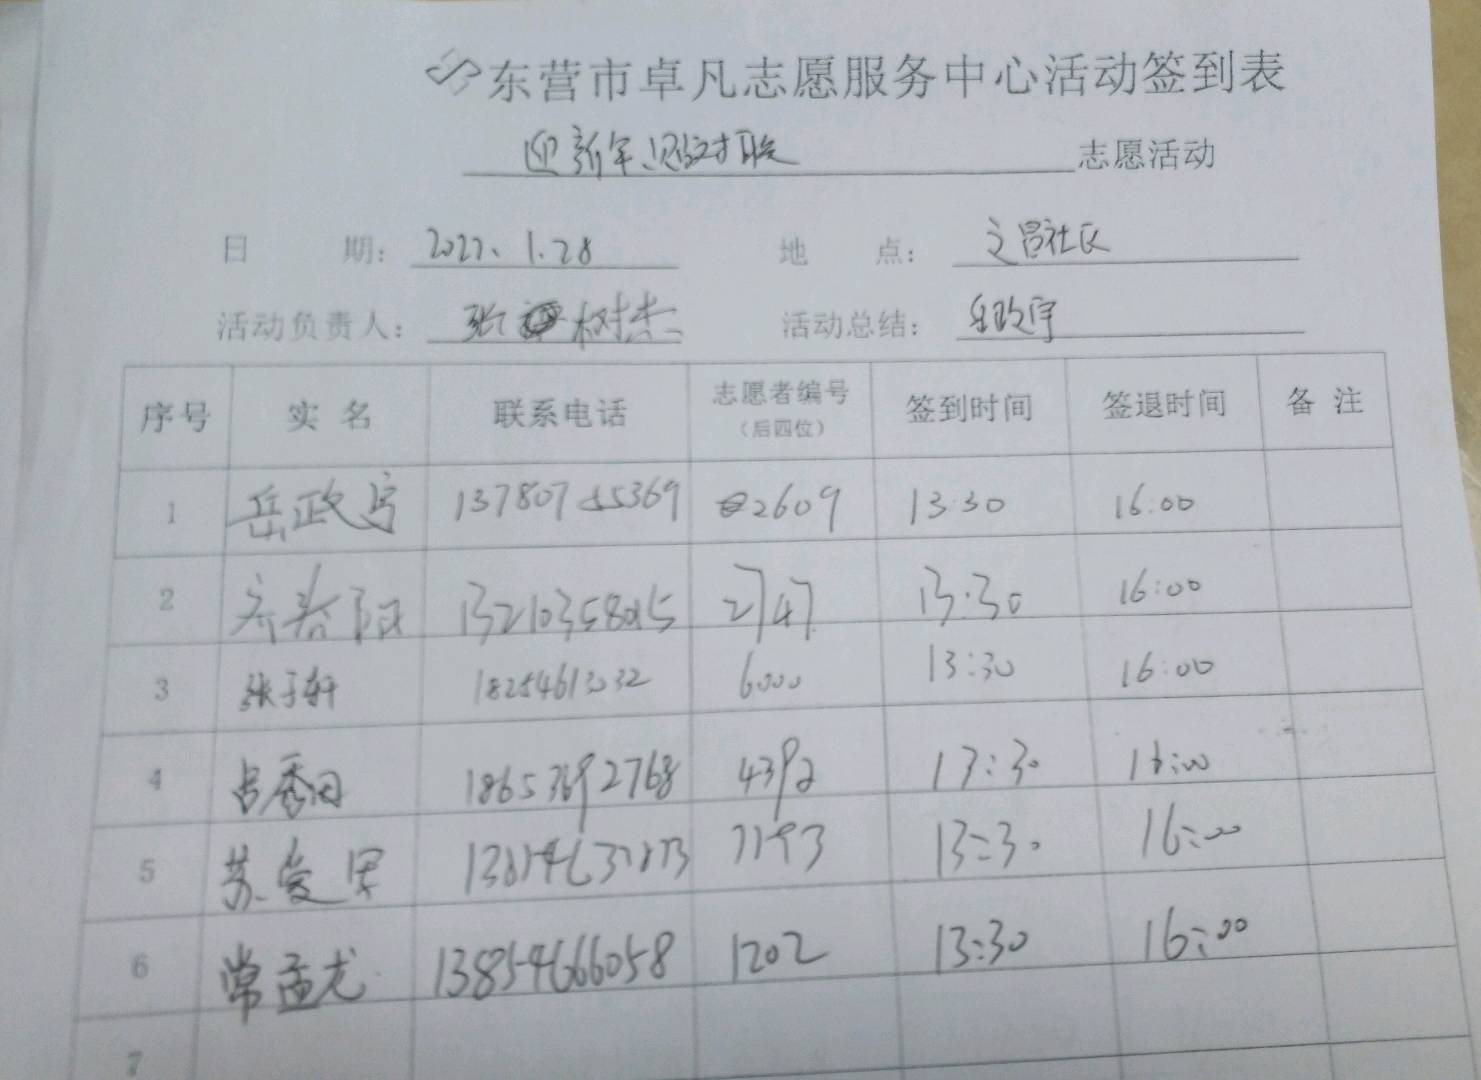 东营市卓凡志愿服务中心活动签到表
迎新年、送对联 志愿活动
日 期: 2022.1.28 地 点: 文昌社区
活动负责人: 张树杰 活动总结: 岳政宇
序号 实 名 联系电话 志愿者编号 (后四位) 签到时间 签退时间 备 注
1 岳政宇 2609 13:30 16:00
2 13210358015 2747 13:30 16:00
3 张子轩 18254613032 6000 13:30 16:00
4 18653692768 4392 13:30 16:00
5 苏爱军 7193 13:30 16:00
6 常孟尤 13854666058 1202 13:30 16:00
7